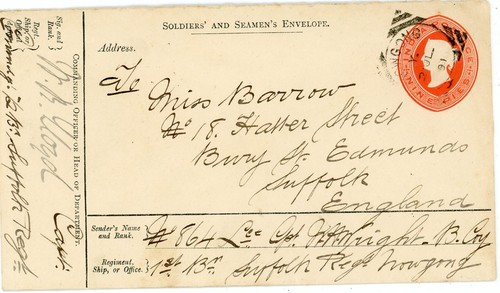 SOLDIERS' AND SEAMEN'S ENVELOPE.
Address.
To
Miss Barrow
No 18. Hatter Street
Bury St. Edmunds
Suffolk
England
Sender's Name and Rank.
No 864 Lce Cpl. Wright. B. Coy
Regiment, Ship, or Office.
1st Bn Suffolk Regt Nowgong
COMMANDING OFFICER OR HEAD OF DEPARTMENT.
Sig. and Rank.
Lloyd
Capt.
Regt. Ship, or Office.
Comming. Bn. Suffolk Regt.
INDIA POSTAGE
NINE PIES
JL
91